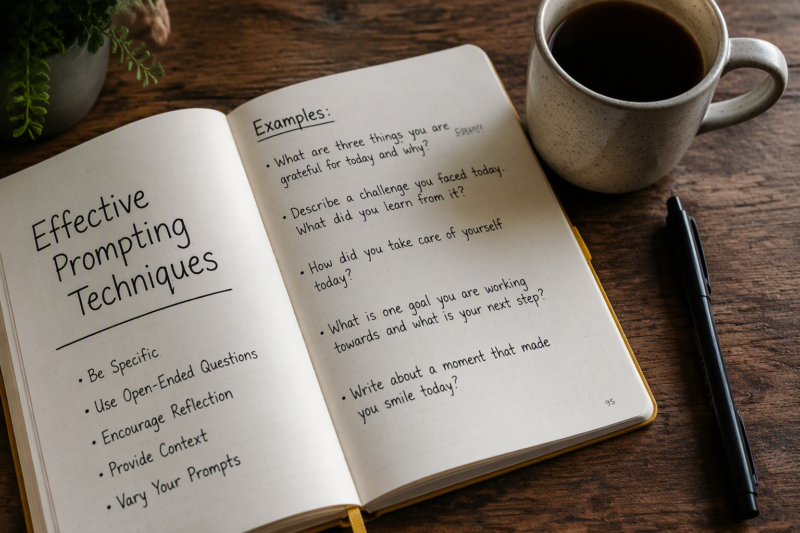 Effective
Prompting
Techniques
• Be Specific
• Use Open-Ended Questions
• Encourage Reflection
• Provide Context
• Vary Your Prompts
Examples:
• What are three things you are
grateful for today and why?
• Describe a challenge you faced today.
What did you learn from it?
• How did you take care of yourself
today?
• What is one goal you are working
towards and what is your next step?
• Write about a moment that made
you smile today?
95